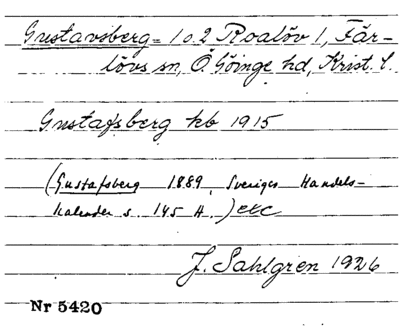 Gustavsberg = 1 o. 2 Roalöv 1, Fär-
lövs sn, Ö. Göinge hd, Krist. l.
Gustafsberg kb 1915
(Gustafsberg 1889. Sveriges Handels-
kalender s. 145 H.) etc
J. Sahlgren 1926
Nr 5420